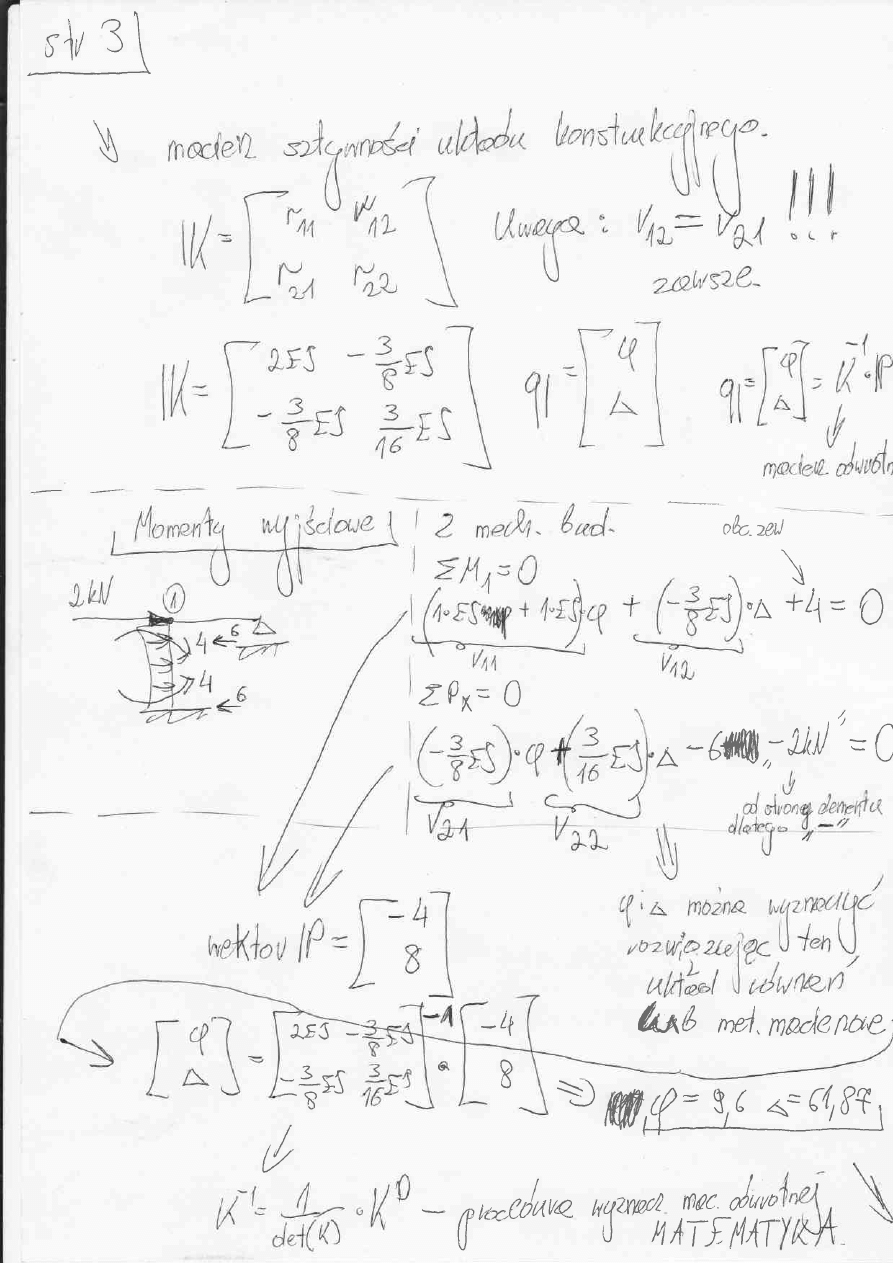 str 3
macierz sztywności układu konstrukcyjnego.
IK = [ r11 r12
r21 r22 ]
Uwaga: r12 = r21 !!!
zawsze.
IK = [ 2EJ -3/8EJ
-3/8EJ 3/16EJ ]
q = [ φ
Δ ]
q = [ φ
Δ ] = K^-1 · IP
macierz odwrotn
Momenty wyjściowe
2 kN ① Δ
4 6
4 6
Z mech. bud. obc. zew
ΣM1 = 0
(1·EJ + 1·EJ)·φ + (-3/8EJ)·Δ + 4 = 0
r11 r12
ΣPx = 0
(-3/8EJ)·φ + (3/16EJ)·Δ - 6 „-2kN” = 0
r21 r22
od strony elementu
dlatego „-”
wektor IP = [ -4
8 ]
φ i Δ można wyznaczyć
rozwiązując ten
układ równań
lub met. macierzowe
[ φ
Δ ] = [ 2EJ -3/8EJ
-3/8EJ 3/16EJ ]^-1 · [ -4
8 ] ⇒ φ = 9,6 Δ = 61,87
K^-1 = 1/det(K) · K^D – procedura wyznacz. mac. odwrotnej
MATEMATYKA.